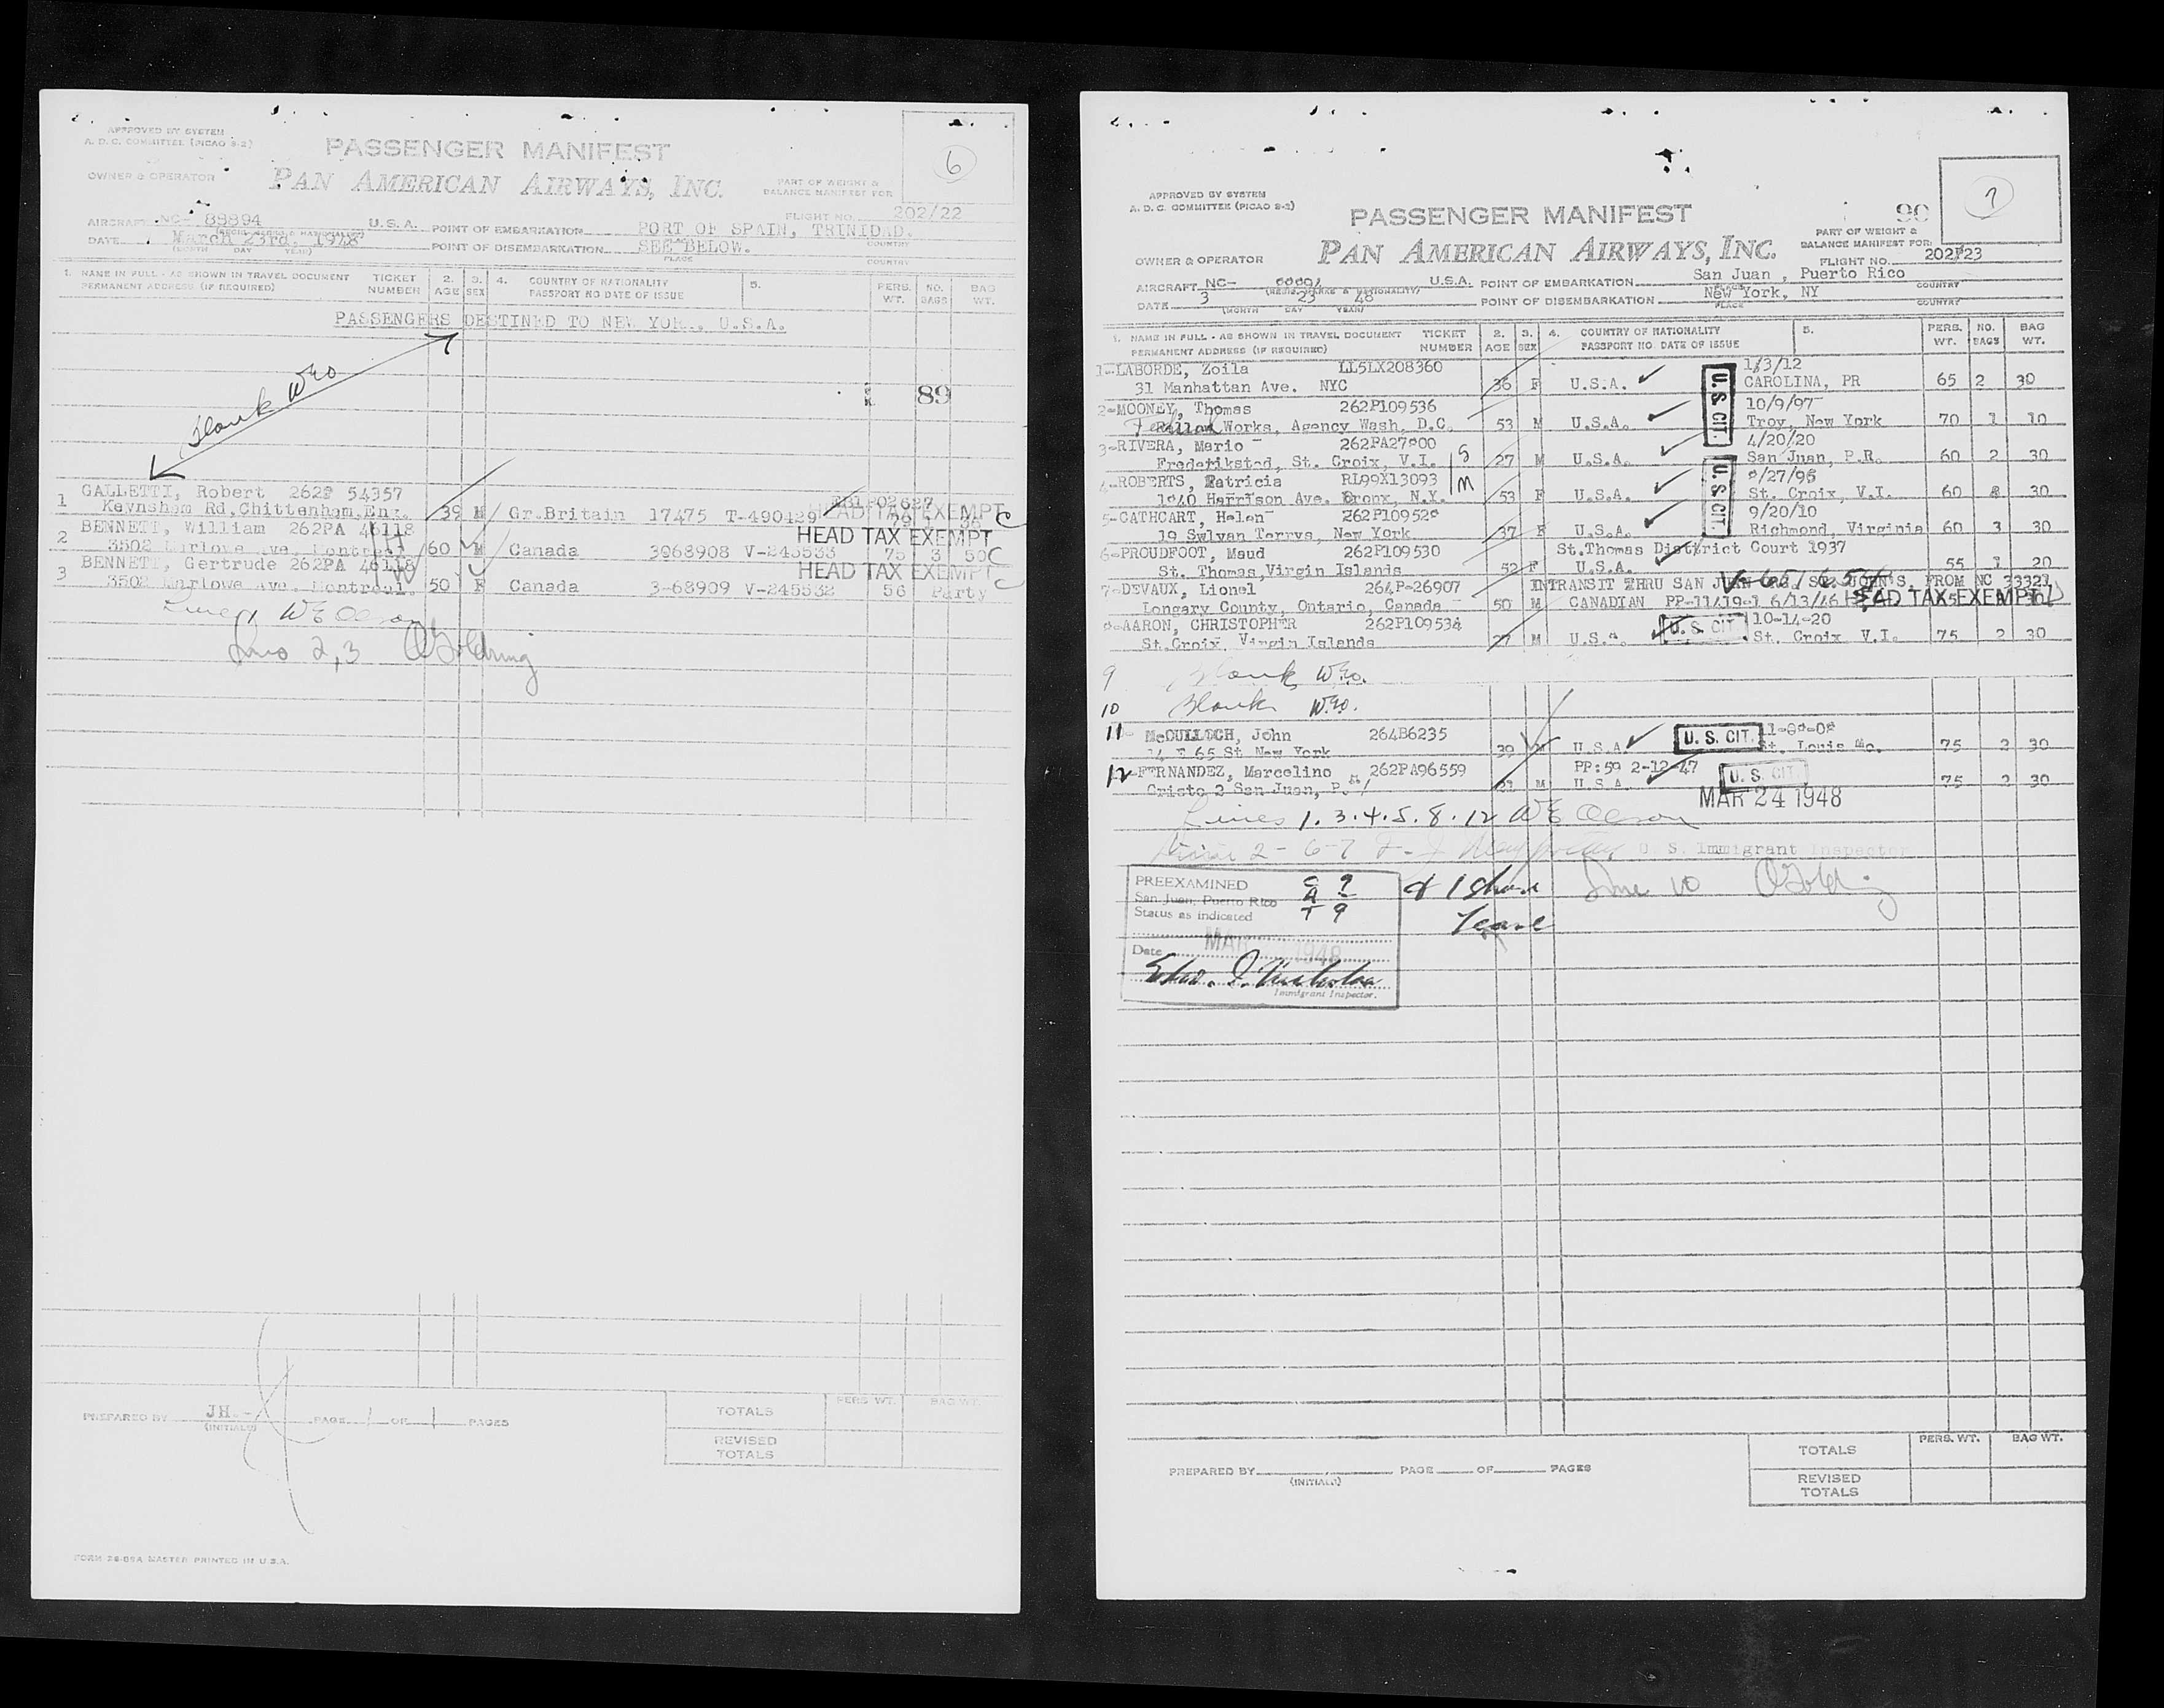 APPROVED BY SYSTEM
A. D. C. COMMITTEE (PICAO S-2)
PASSENGER MANIFEST
6
OWNER & OPERATOR
PAN AMERICAN AIRWAYS, INC.
PART OF WEIGHT &
BALANCE MANIFEST FOR
FLIGHT NO. 202/22
AIRCRAFT NC- 89894 U.S.A. POINT OF EMBARKATION PORT OF SPAIN, TRINIDAD.
DATE March 23rd. 1948 POINT OF DISEMBARKATION SEE BELOW.
(MONTH DAY YEAR) PLACE COUNTRY
1. NAME IN FULL - AS SHOWN IN TRAVEL DOCUMENT TICKET 2. 3. 4. COUNTRY OF NATIONALITY 5. PERS. NO. BAG
PERMANENT ADDRESS (IF REQUIRED) NUMBER AGE SEX PASSPORT NO DATE OF ISSUE WT. BAGS WT.
PASSENGERS DESTINED TO NEW YORK, U.S.A.
Blank WEO
89
1 GALLETTI, Robert 262P 54357
Keynsham Rd, Chittenham, Eng. 39 M Gr.Britain 17475 T-490429
HEAD TAX EXEMPT C
2 BENNETT, William 262PA 46118 HEAD TAX EXEMPT
3502 Marlowe Ave. Montreal 60 M Canada 3068908 V-245533 75 3 50 C
3 BENNETT, Gertrude 262PA 46118 HEAD TAX EXEMPT C
3502 Marlowe Ave. Montreal. 50 F Canada 3-68909 V-245532 56 Party
H
W
Line 1 WE Olson
Lines 2,3 O Goldring
PREPARED BY JH.- PAGE 1 OF 1 PAGES
(INITIALS)
TOTALS PERS. WT. BAG WT.
REVISED
TOTALS
FORM 28-09A MASTER PRINTED IN U.S.A.
APPROVED BY SYSTEM
A. D. C. COMMITTEE (PICAO S-2)
PASSENGER MANIFEST
90
7
OWNER & OPERATOR
PAN AMERICAN AIRWAYS, INC.
PART OF WEIGHT &
BALANCE MANIFEST FOR
FLIGHT NO. 202P23
AIRCRAFT NC- U.S.A. POINT OF EMBARKATION San Juan , Puerto Rico
DATE 3 23 48 POINT OF DISEMBARKATION New York, NY
(MONTH DAY YEAR) PLACE COUNTRY
1. NAME IN FULL - AS SHOWN IN TRAVEL DOCUMENT TICKET 2. 3. 4. COUNTRY OF NATIONALITY 5. PERS. NO. BAG
PERMANENT ADDRESS (IF REQUIRED) NUMBER AGE SEX PASSPORT NO. DATE OF ISSUE WT. BAGS WT.
1-LABORDE, Zoila LL5LX208360 1/3/12
31 Manhattan Ave. NYC 36 F U.S.A. CAROLINA, PR 65 2 30
U.S. CIT.
2-MOONEY, Thomas 262P109536 10/9/97
Works, Agency Wash, D.C. 53 M U.S.A. Troy, New York 70 1 10
3-RIVERA, Mario 262PA27800 4/20/20
Frederiksted, St. Croix, V.I. 27 M U.S.A. San Juan, P.R. 60 2 30
S
M
4-ROBERTS, Patricia RL99X13093 8/27/95
1840 Harrison Ave. Bronx, N.Y. 53 F U.S.A. St. Croix, V.I. 60 30
U.S. CIT.
5-CATHCART, Helen 262P109528 9/20/10
19 Sylvan Terrys, New York 37 F U.S.A. Richmond, Virginia 60 3 30
6-PROUDFOOT, Maud 262P109530 St.Thomas District Court 1937
St. Thomas, Virgin Islands 52 F U.S.A. 55 1 20
7-DEVAUX, Lionel 264P-26907 INTRANSIT THRU SAN JUAN ST. JOHN'S, FROM NC 33321
Longary County, Ontario, Canada 50 M CANADIAN PP-11419-1 6/13/46 HEAD TAX EXEMPT
8-AARON, CHRISTOPHER 262P109534 U. S. CIT. 10-14-20
St.Croix, Virgin Islands 27 M U.S.A. St. Croix V.I. 75 2 30
9 Blank WEO.
10 Blank WEO.
11 McCULLOCH, John 264B6235
14 E 65 St New York 39 M U.S.A U.S. CIT. St. Louis Mo. 75 2 30
12-FERNANDEZ, Marcelino 262PA96559 PP:59 2-12-47
Cristo 2 San Juan, P. M U.S.A. U. S. CIT. 75 2 30
MAR 24 1948
Lines 1. 3. 4. 5. 8. 12 WE Olson
2-6-7 U. S. Immigrant Inspector
PREEXAMINED
San Juan, Puerto Rico
Status as indicated
C 9
A -
T 9
Date MAR 1948
Immigrant Inspector.
Line 10 O Goldring
PREPARED BY PAGE OF PAGES
(INITIALS)
TOTALS PERS. WT. BAG WT.
REVISED
TOTALS